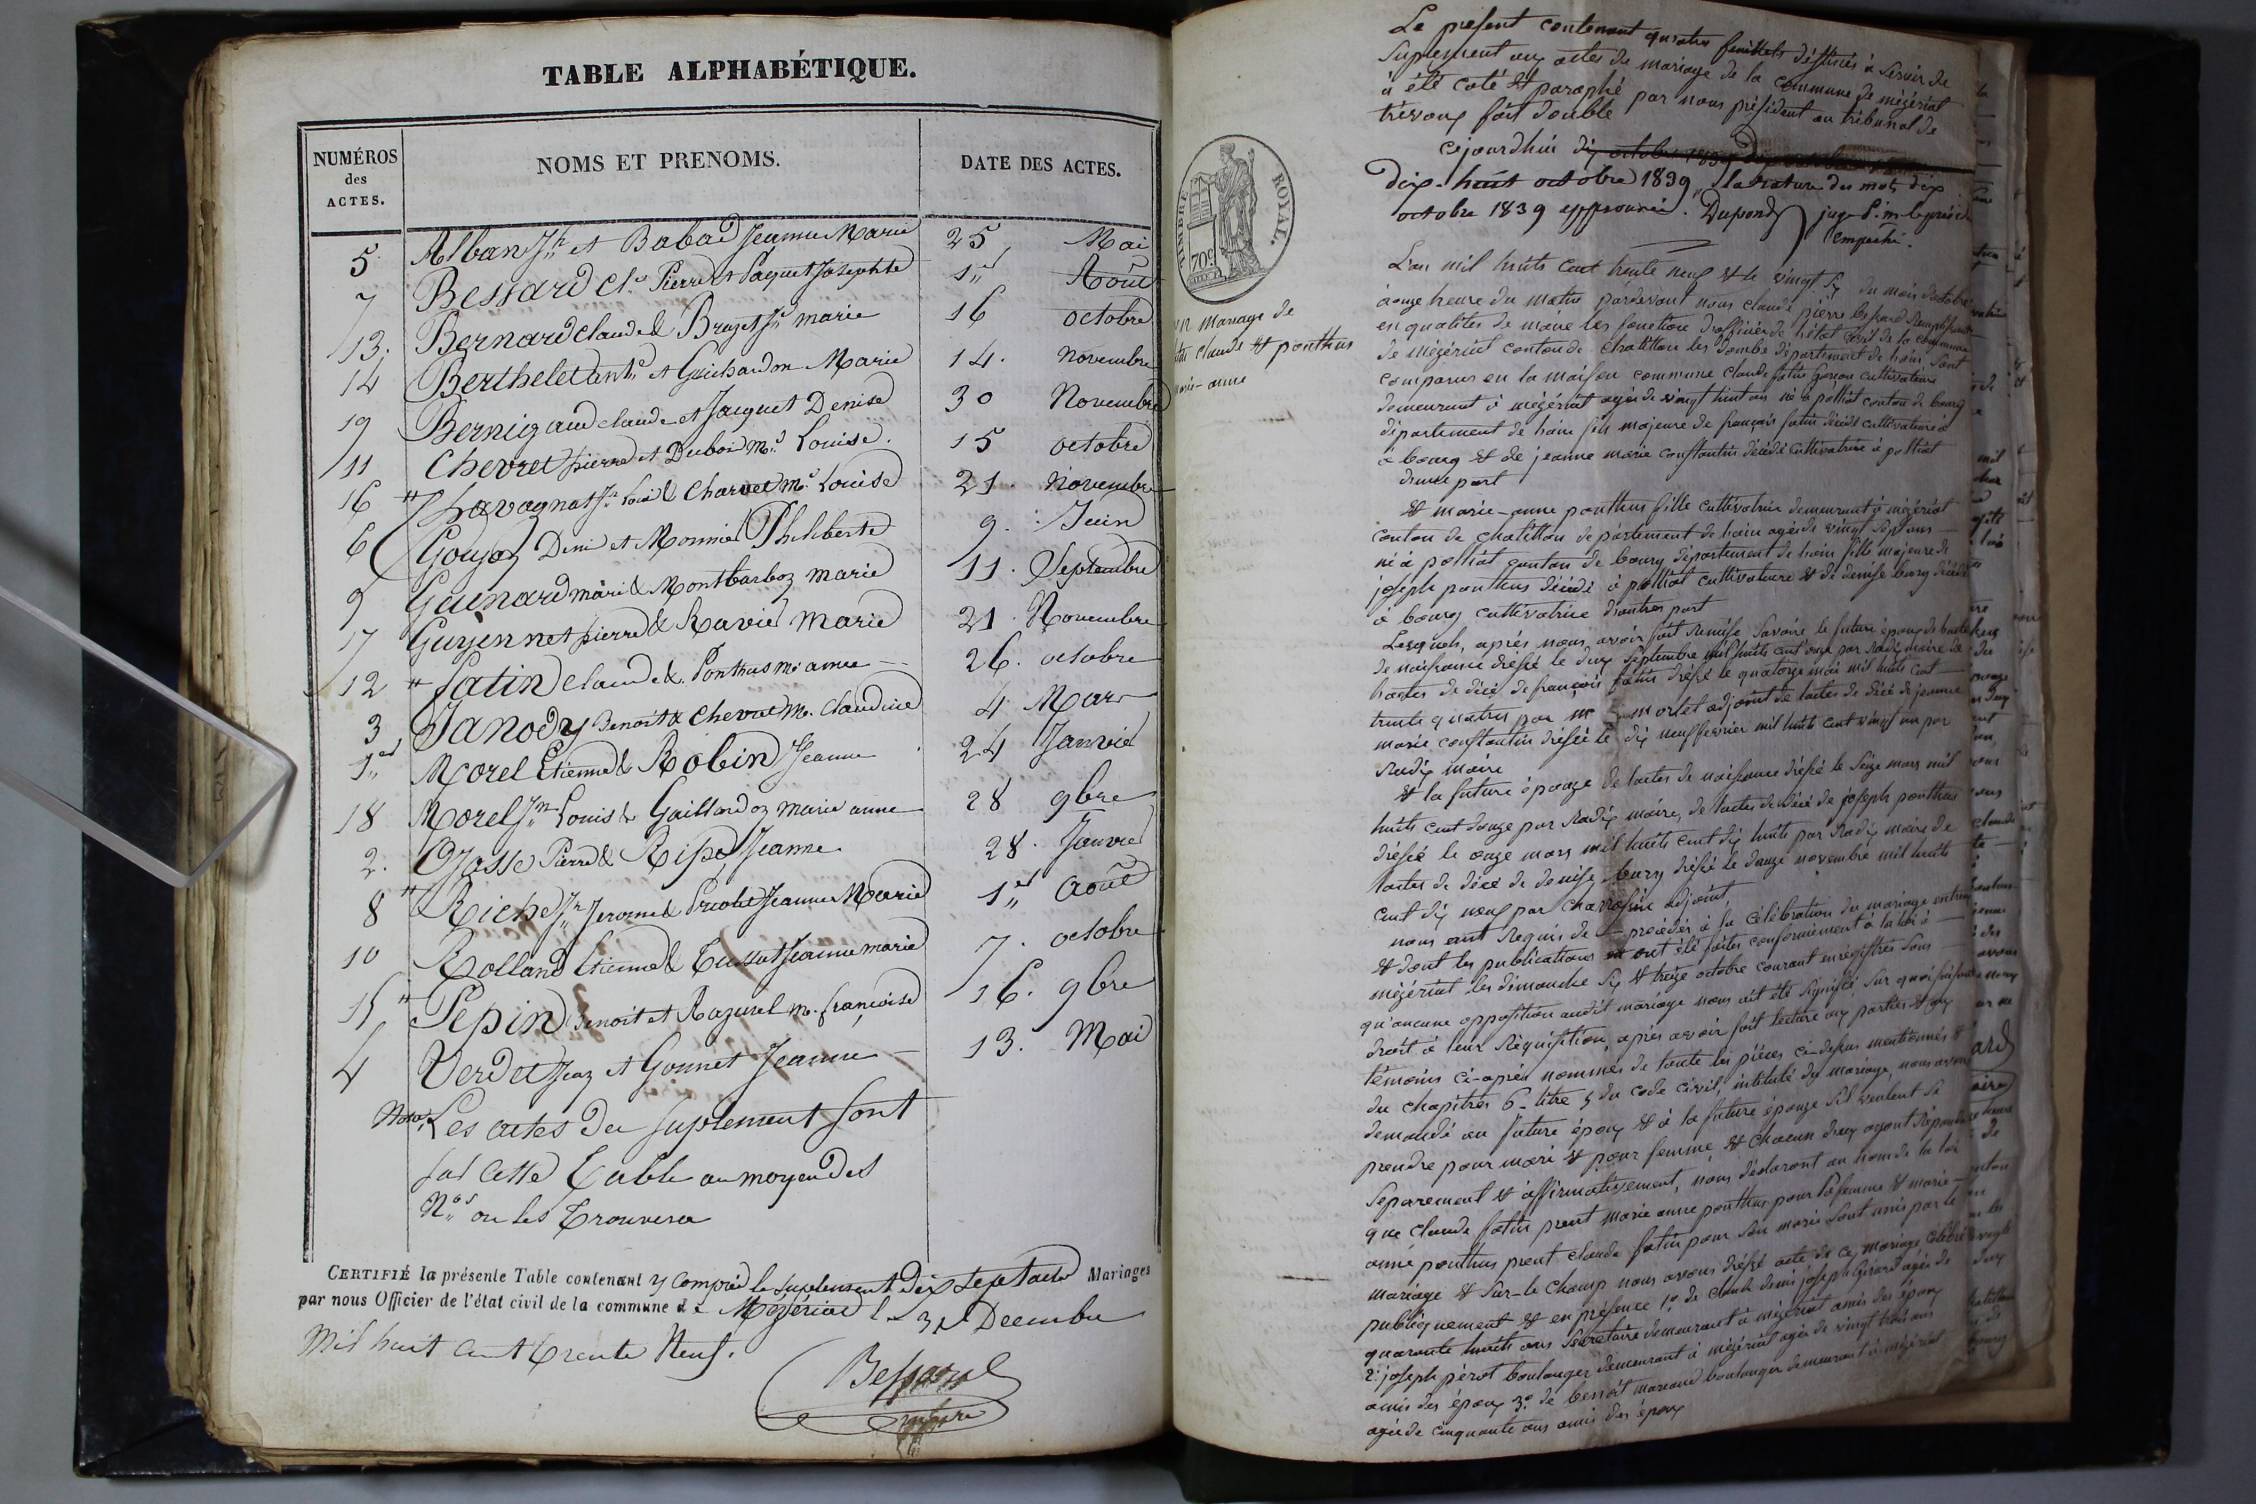 TABLE ALPHABÉTIQUE.
NUMÉROS des ACTES.
NOMS ET PRENOMS.
DATE DES ACTES.
5 Alban Jh et Babad Jeanne Marie 25 Mai
7 Bessard Cl. Pierre & Paquet Josephte 1er Août
13. Bernard claude & Brazet marie 16 octobre
14 Berthelet ant. et Guichardon Marie 14. Novembre
19 Bernigaud claude et Jacquet Denise 30 Novembre
11 Chevret pierre et Dubois Mie Louise. 15 octobre
16 Chavagnat Jh Louis & Charvet mie Louise 21. Novembre
6 Goujoz Denis et Monnier Philiberte 9. Juin
9 Guenard & Montbarboz marie 11. Septembre
17 Guyennet pierre & Ravier Marie 21. Novembre
12 fatin claude & Ponthus m. anne 26. octobre
3 Janody Benoit & chevret m. Claudine 4 Mars
1er Morel Etienne & Robin Jeanne 24 Janvier
18 Morel Louis & Gaillardoz marie anne 28 9bre
2. Pierre & Jeanne 28. Janvier
8 Riche Jerome & Jeanne Marie 1er Août
10 Rolland Etienne & Jeanne marie 7. octobre
15 Pepin Benoit et Razurel m. françoise 16. 9bre
4 Verdet et Gonnet Jeanne 13. Mai
Nota. Les actes du suplement sont
sur cette Table au moyen des
Nos on les trouvera
CERTIFIÉ la présente Table contenant y compris le suplement Dix Mariages
par nous Officier de l'état civil de la commune de Mézériat le 31 Decembre
mil huit cent trente Neuf.
Bessard
maire
TIMBRE ROYAL.
70c
12 Mariage de
fatin claude & ponthus
marie-anne
Le présent contenant quatre feuillets déstinés à servir de
suplement aux actes de mariage de la commune de mézériat
a été coté & paraphé par nous président au tribunal de
trévoux fait double
cejourdhui dix octobre 1839
dix-huit octobre 1839, la rature des mots dix
octobre 1839 approuvée. Dupond juge p. m. le présid
empeché.
L'an mil huits cent trente neuf & le vingt six du mois d'octobre
à onze heure du matin pardevant nous claude pierre bessard remplissant
en qualités de maire les fonction d'officier de l'état civil de la commune
de mézériat canton de chatillon les dombe département de l'ain sont
comparus en la maison commune claude fatin garson cultivateur
demeurant à mézériat agé de vingt huit ans né à polliat canton de bourg
département de l'ain fils majeure de françois fatin décédé cultivateur
à bourg & de jeanne marie constantin décédé cultivatrice à polliat
d'une part
& marie-anne ponthus fille cultivatrice demeurant à mézériat
canton de chatillon département de l'ain agée de vingt sept ans
né à polliat canton de bourg département de l'ain fille majeure de
joseph ponthus décédé à polliat cultivateur & de denise bury décédé
à bourg cultivatrice d'autre part
Lesquels, après nous avoir fait remise savoir le future époux de l'acte
de naissance dréssé le deux septembre mil huits cent onze par Radix maire de
l'actes de décé de françois fatin dréssé le quatorze mai mil huits cent
trente quatre par mr morlet adjoint de l'actes de décé de jeanne
marie constantin dréssé le dix neuf fevrier mil huits cent vingt un par
Radix maire
& la future épouze de l'actes de naissance dréssé le seize mars mil
huits cent douze par Radix maire, de l'actes de décé de joseph ponthus
dréssé le onze mars mil huits cent dix huits par Radix maire de
l'actes de décé de denise bury dréssé le douze novembre mil huits
cent dix neuf par adjoint
nous ont requis de procéder à la célébration du mariage entr'eux
& dont les publications ont été faites conformément à la loi à
mézériat les dimanche six & treize octobre courant enregistrés sans
qu'aucune opposition audit mariage nous ait été signifié, sur quoi faisant
droit à leur réquisition, après avoir fait lecture aux parties & aux
témoins ci-après nommés de toute les pièces ci-dessus mentionnés &
du chapitres 6 - titre 5 du code civil, intitulé du mariage, nous avons
demandé au future époux & à la future épouze s'il veulent se
prendre pour mari & pour femme & chacun d'eux ayant répondu
séparement & affirmativement, nous déclaront au nom de la loi
que claude fatin prent marie anne ponthus pour sa femme & marie
anne ponthus prent claude fatin pour son marie sont unis par le
mariage & sur-le champ nous avons dréssé acte de ce mariage célébré
publiquement & en présence 1° de claude denis joseph Girard agé de
quarante huits ans secretaire demeurant à mézériat amis des époux
2° joseph pérot boulanger demeurant à mézériat agé de vingt trois ans
amis des époux 3° de benoit mareand boulanger demeurant à mézériat
agé de cinquante ans amis des époux